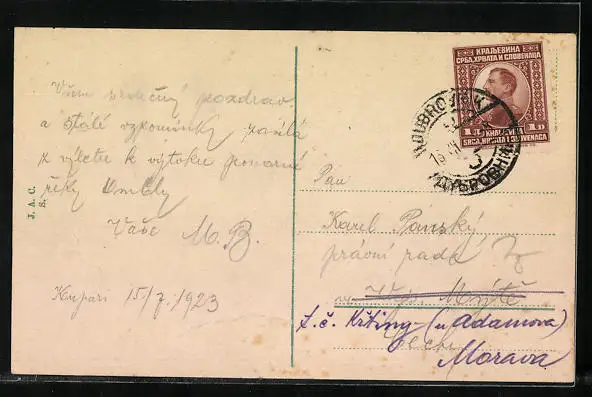 КРАЉЕВИНА
СРБА, ХРВАТА И СЛОВЕНАЦА
1 D KRALJEVINA 1 D
SRBA, HRVATA I SLOVENACA
DUBROVNIK
ДУБРОВНИК
Vám srdečný pozdrav
a stálé vzpomínky zasílá
z výletu k výtoku ponorné
řeky Ombly
Váš M. B.
Kupari 15/7. 1923
J. A. C.
S.
Pan
Karel Pánský
právní rada
Mýtě
t. č. Křtiny (u Adamova)
Čechy
Morava